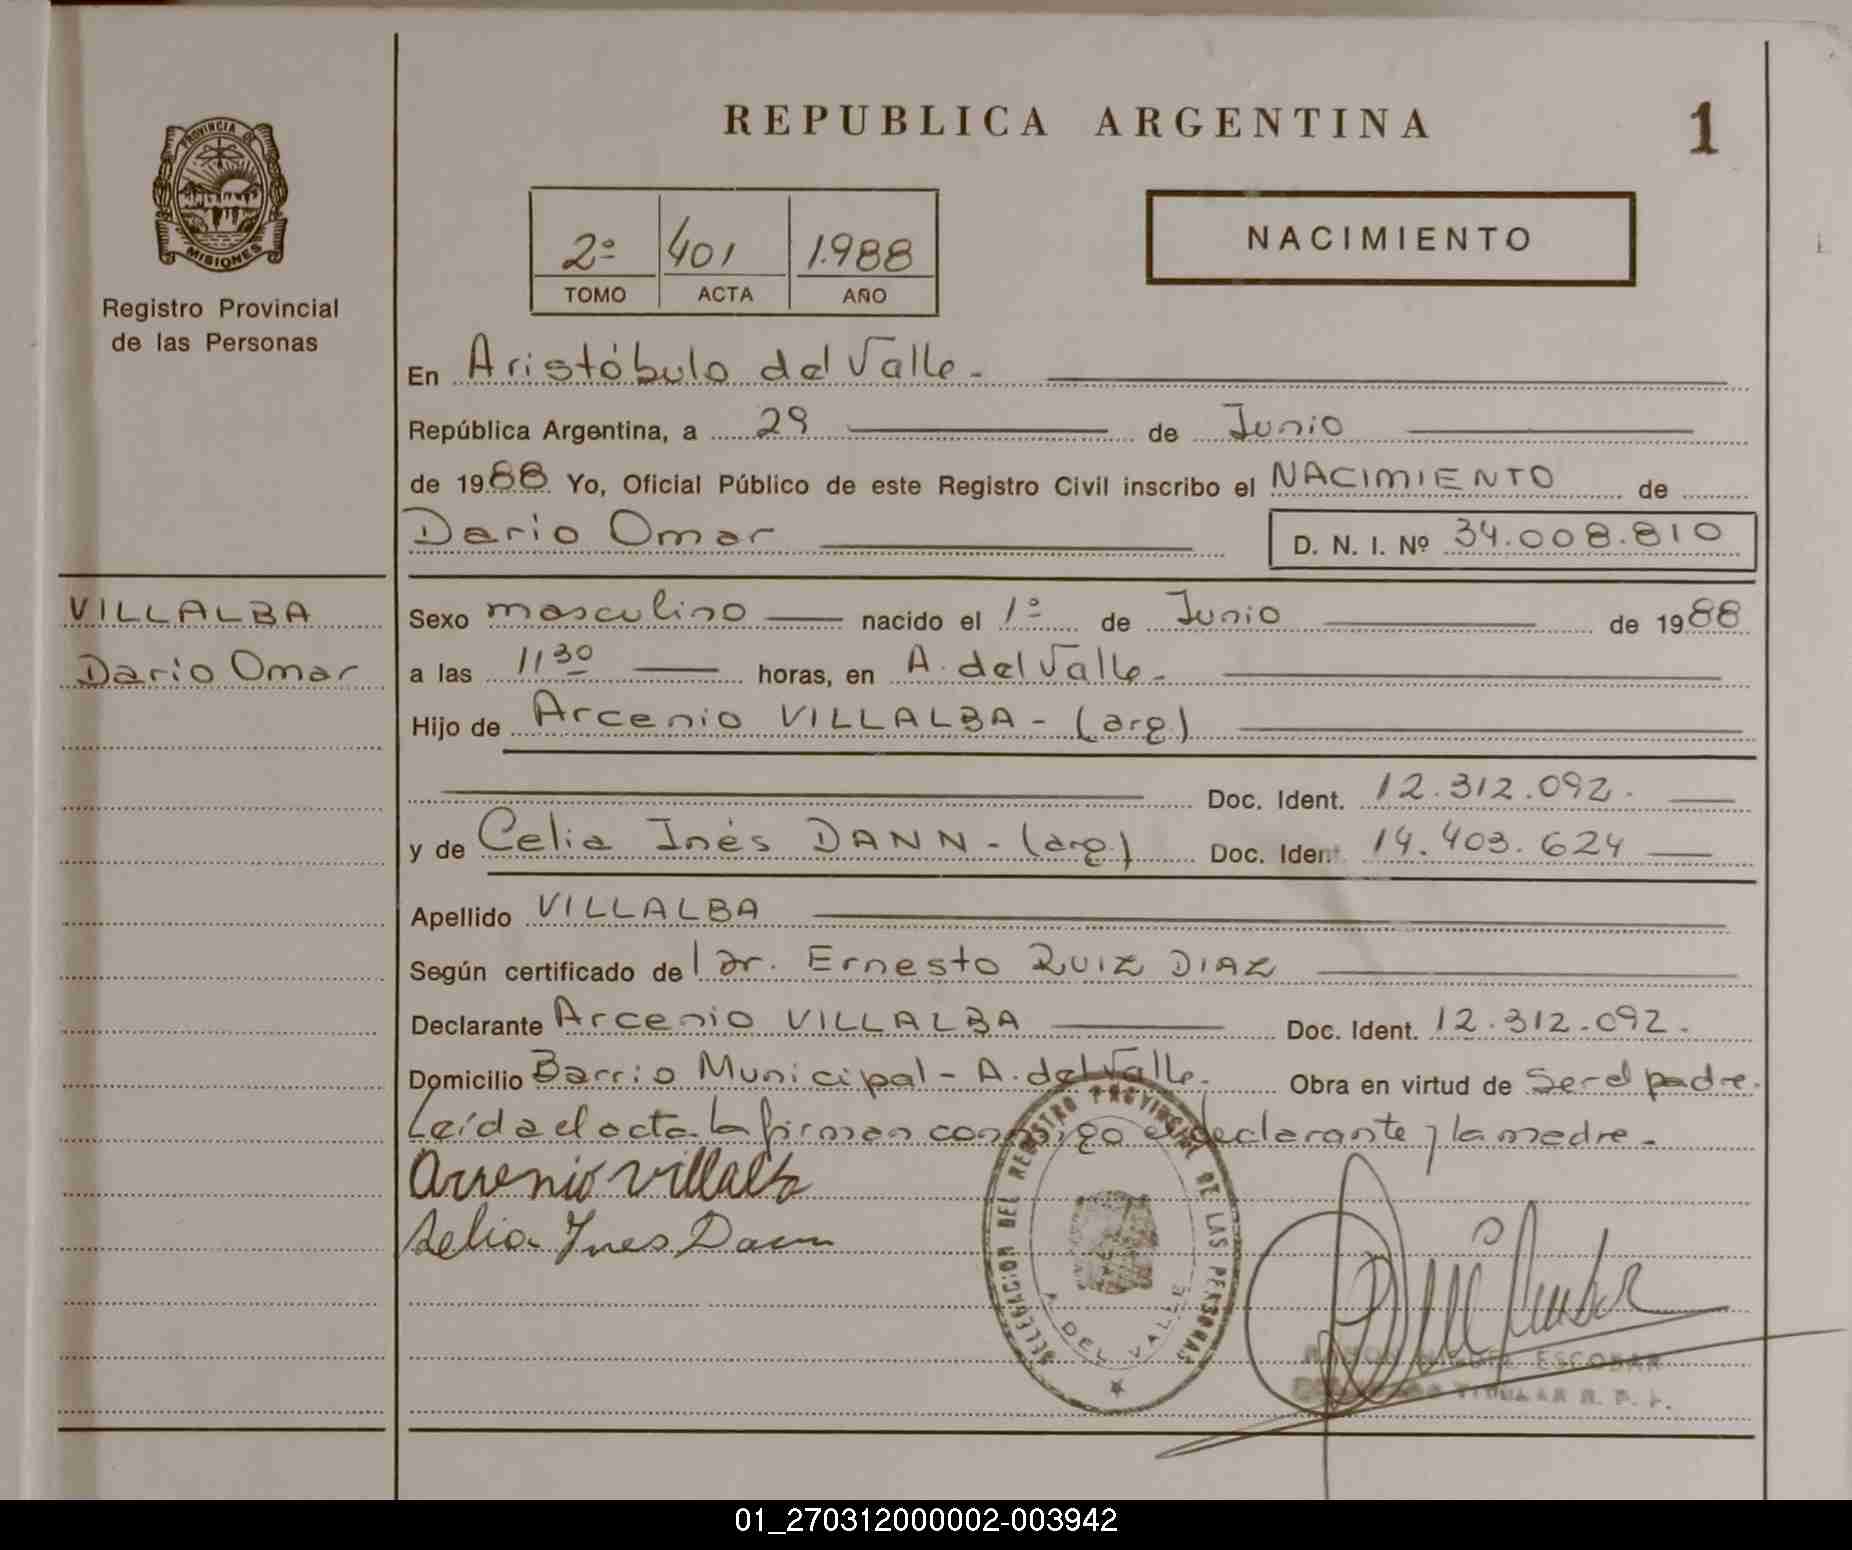 REPUBLICA ARGENTINA
1
PROVINCIA DE
MISIONES
Registro Provincial
de las Personas
2º 401 1.988
TOMO ACTA AÑO
NACIMIENTO
En Aristóbulo del Valle.
República Argentina, a 29 de Junio
de 1988 Yo, Oficial Público de este Registro Civil inscribo el NACIMIENTO de
Dario Omar D. N. I. Nº 34.008.810
VILLALBA
Dario Omar
Sexo masculino nacido el 1º de Junio de 1988
a las 11 30 horas, en A. del Valle.
Hijo de Arcenio VILLALBA - (arg)
Doc. Ident. 12.312.092.
y de Celia Inés DANN - (arg) Doc. Ident. 14.403.624
Apellido VILLALBA
Según certificado de Dr. Ernesto RUIZ DIAZ
Declarante Arcenio VILLALBA Doc. Ident. 12.312.092.
Domicilio Barrio Municipal - A. del Valle. Obra en virtud de Ser el padre.
Leída el acta la firman conmigo el declarante y la madre.
Arcenio Villalba
Selia Ynes Dann
DELEGACION DEL REGISTRO PROVINCIAL DE LAS PERSONAS
A. DEL VALLE
RAMON MIGUEL ESCOBAR
TITULAR R. P. P.
01_270312000002-003942